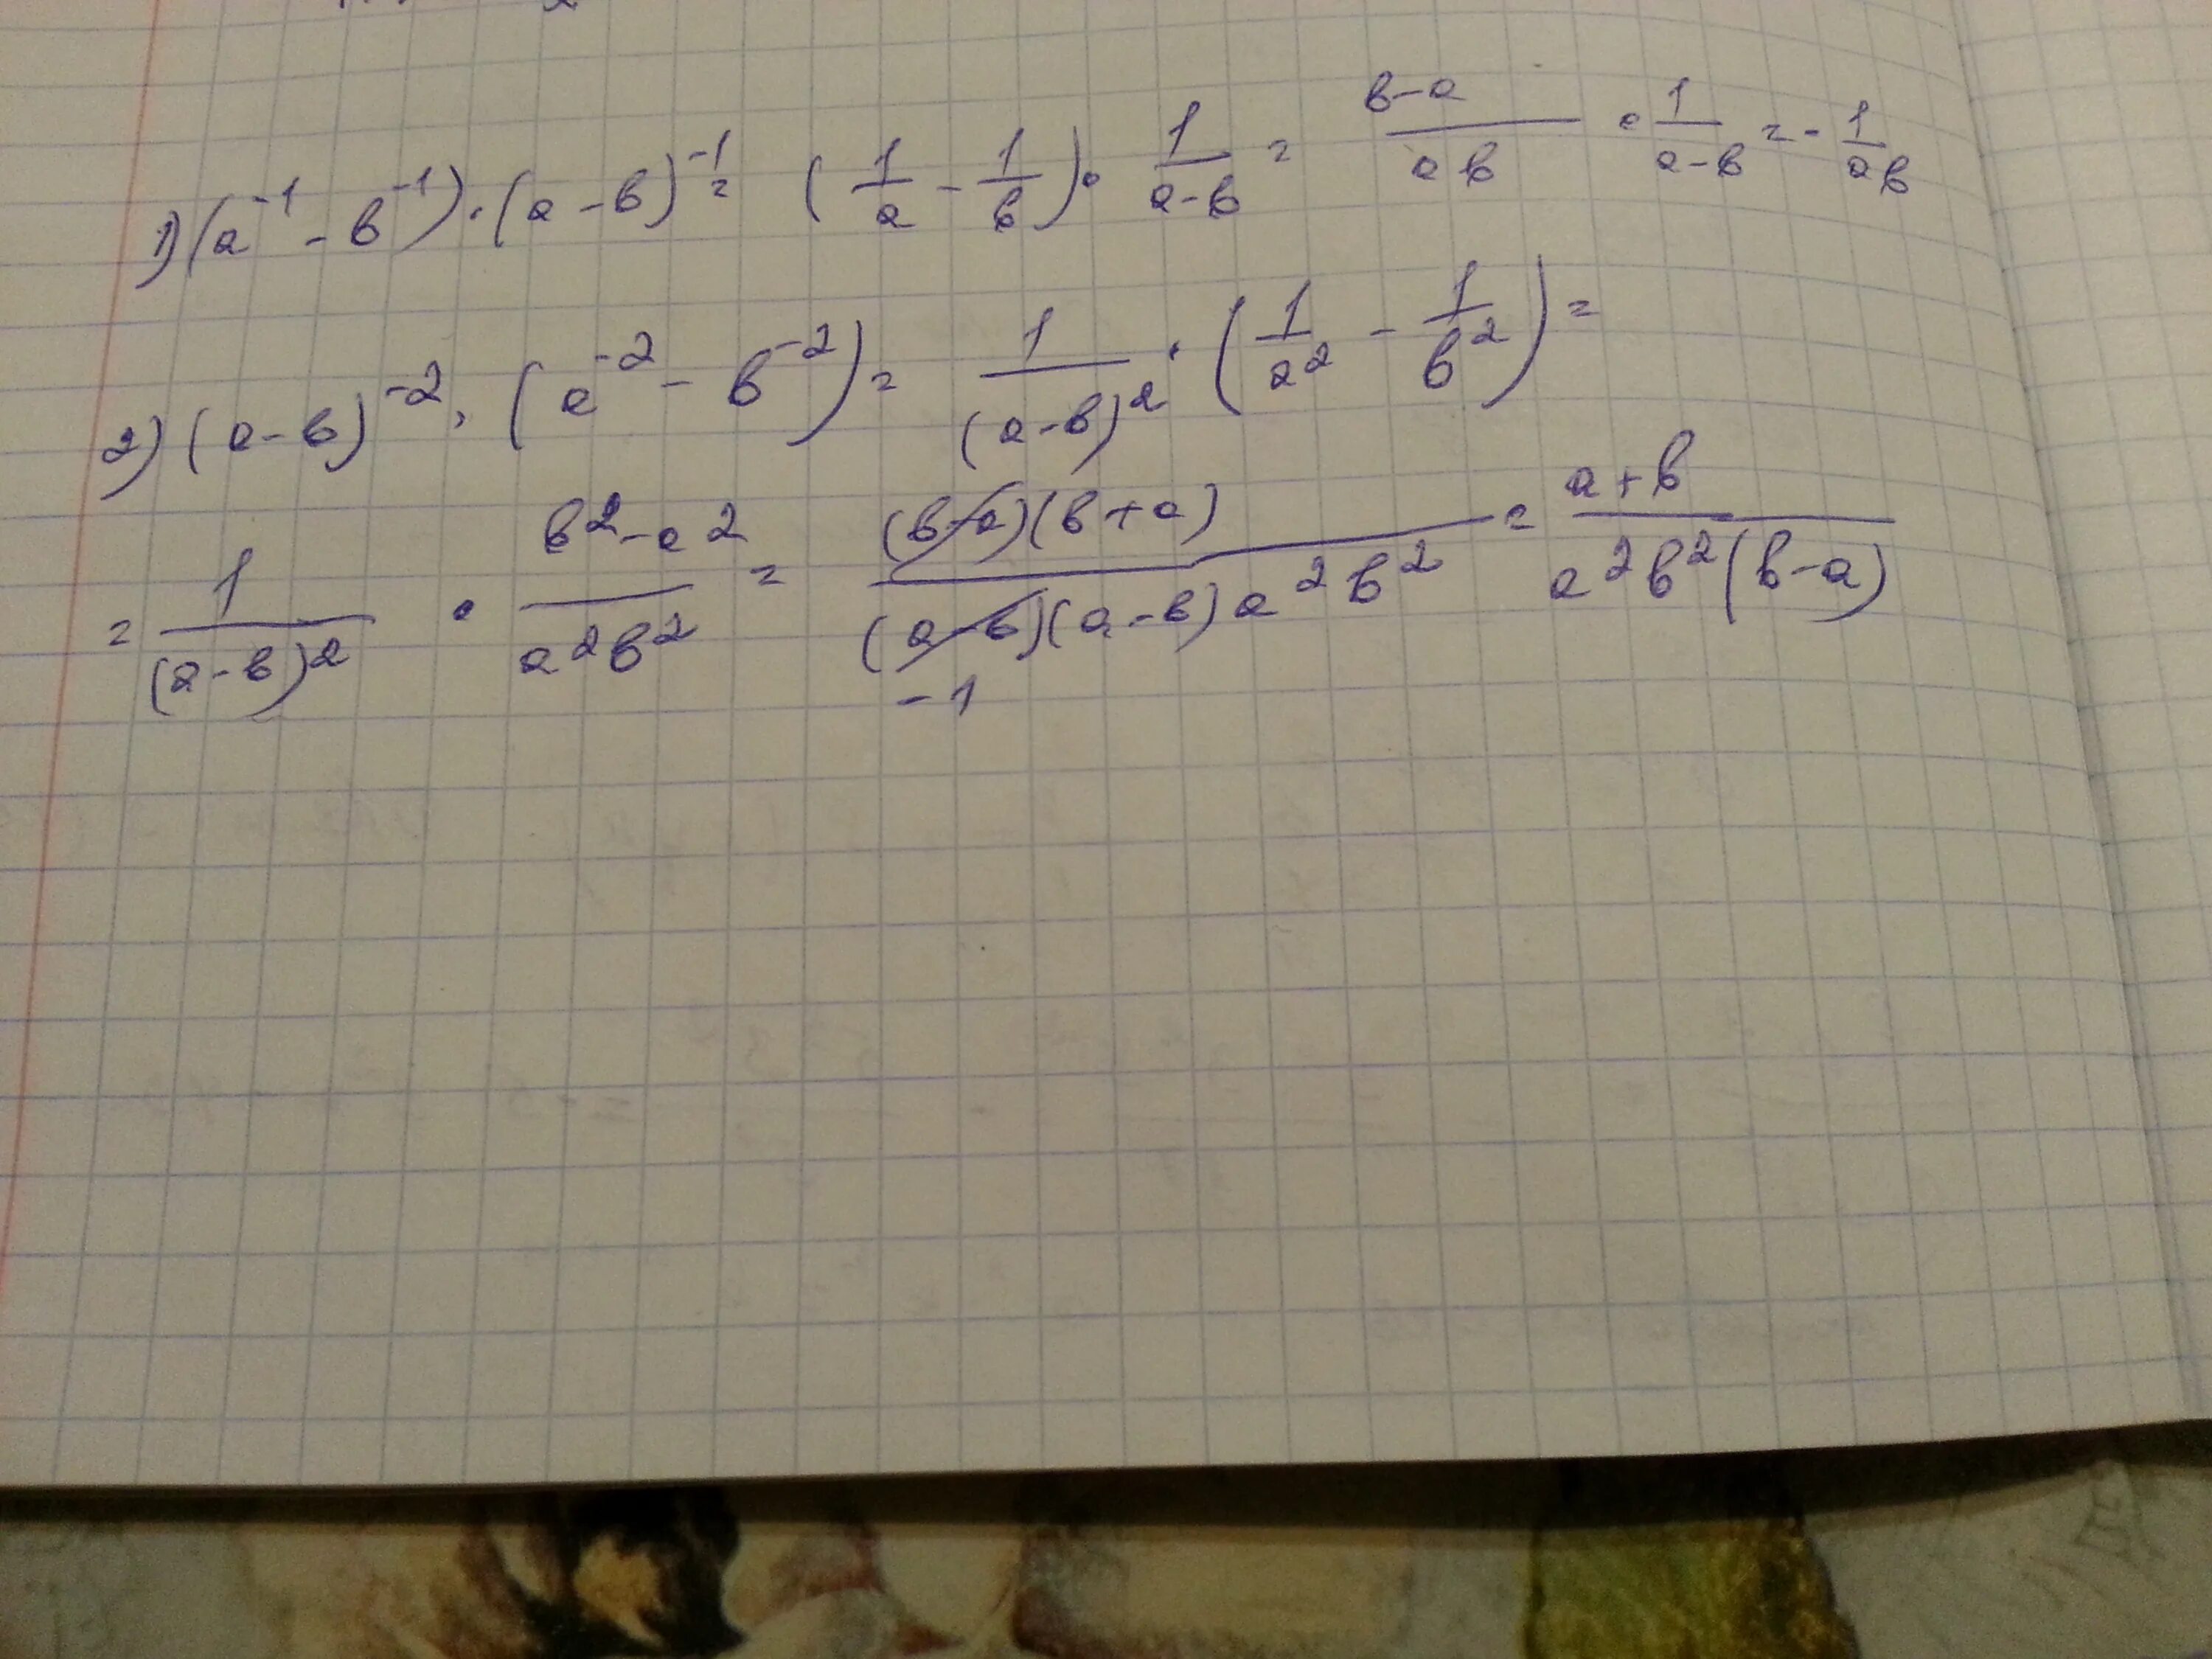 1) (a⁻¹ - b⁻¹) · (a - b)⁻¹ = (1/a - 1/b) · 1/(a-b) = (b-a)/(ab) · 1/(a-b) = - 1/(ab)
2) (a-b)⁻² · (a⁻² - b⁻²) = 1/(a-b)² · (1/a² - 1/b²) =
= 1/(a-b)² · (b²-a²)/(a²b²) = (b-a)(b+a)/((a-b)(a-b)a²b²) = (a+b)/(a²b²(b-a))
-1